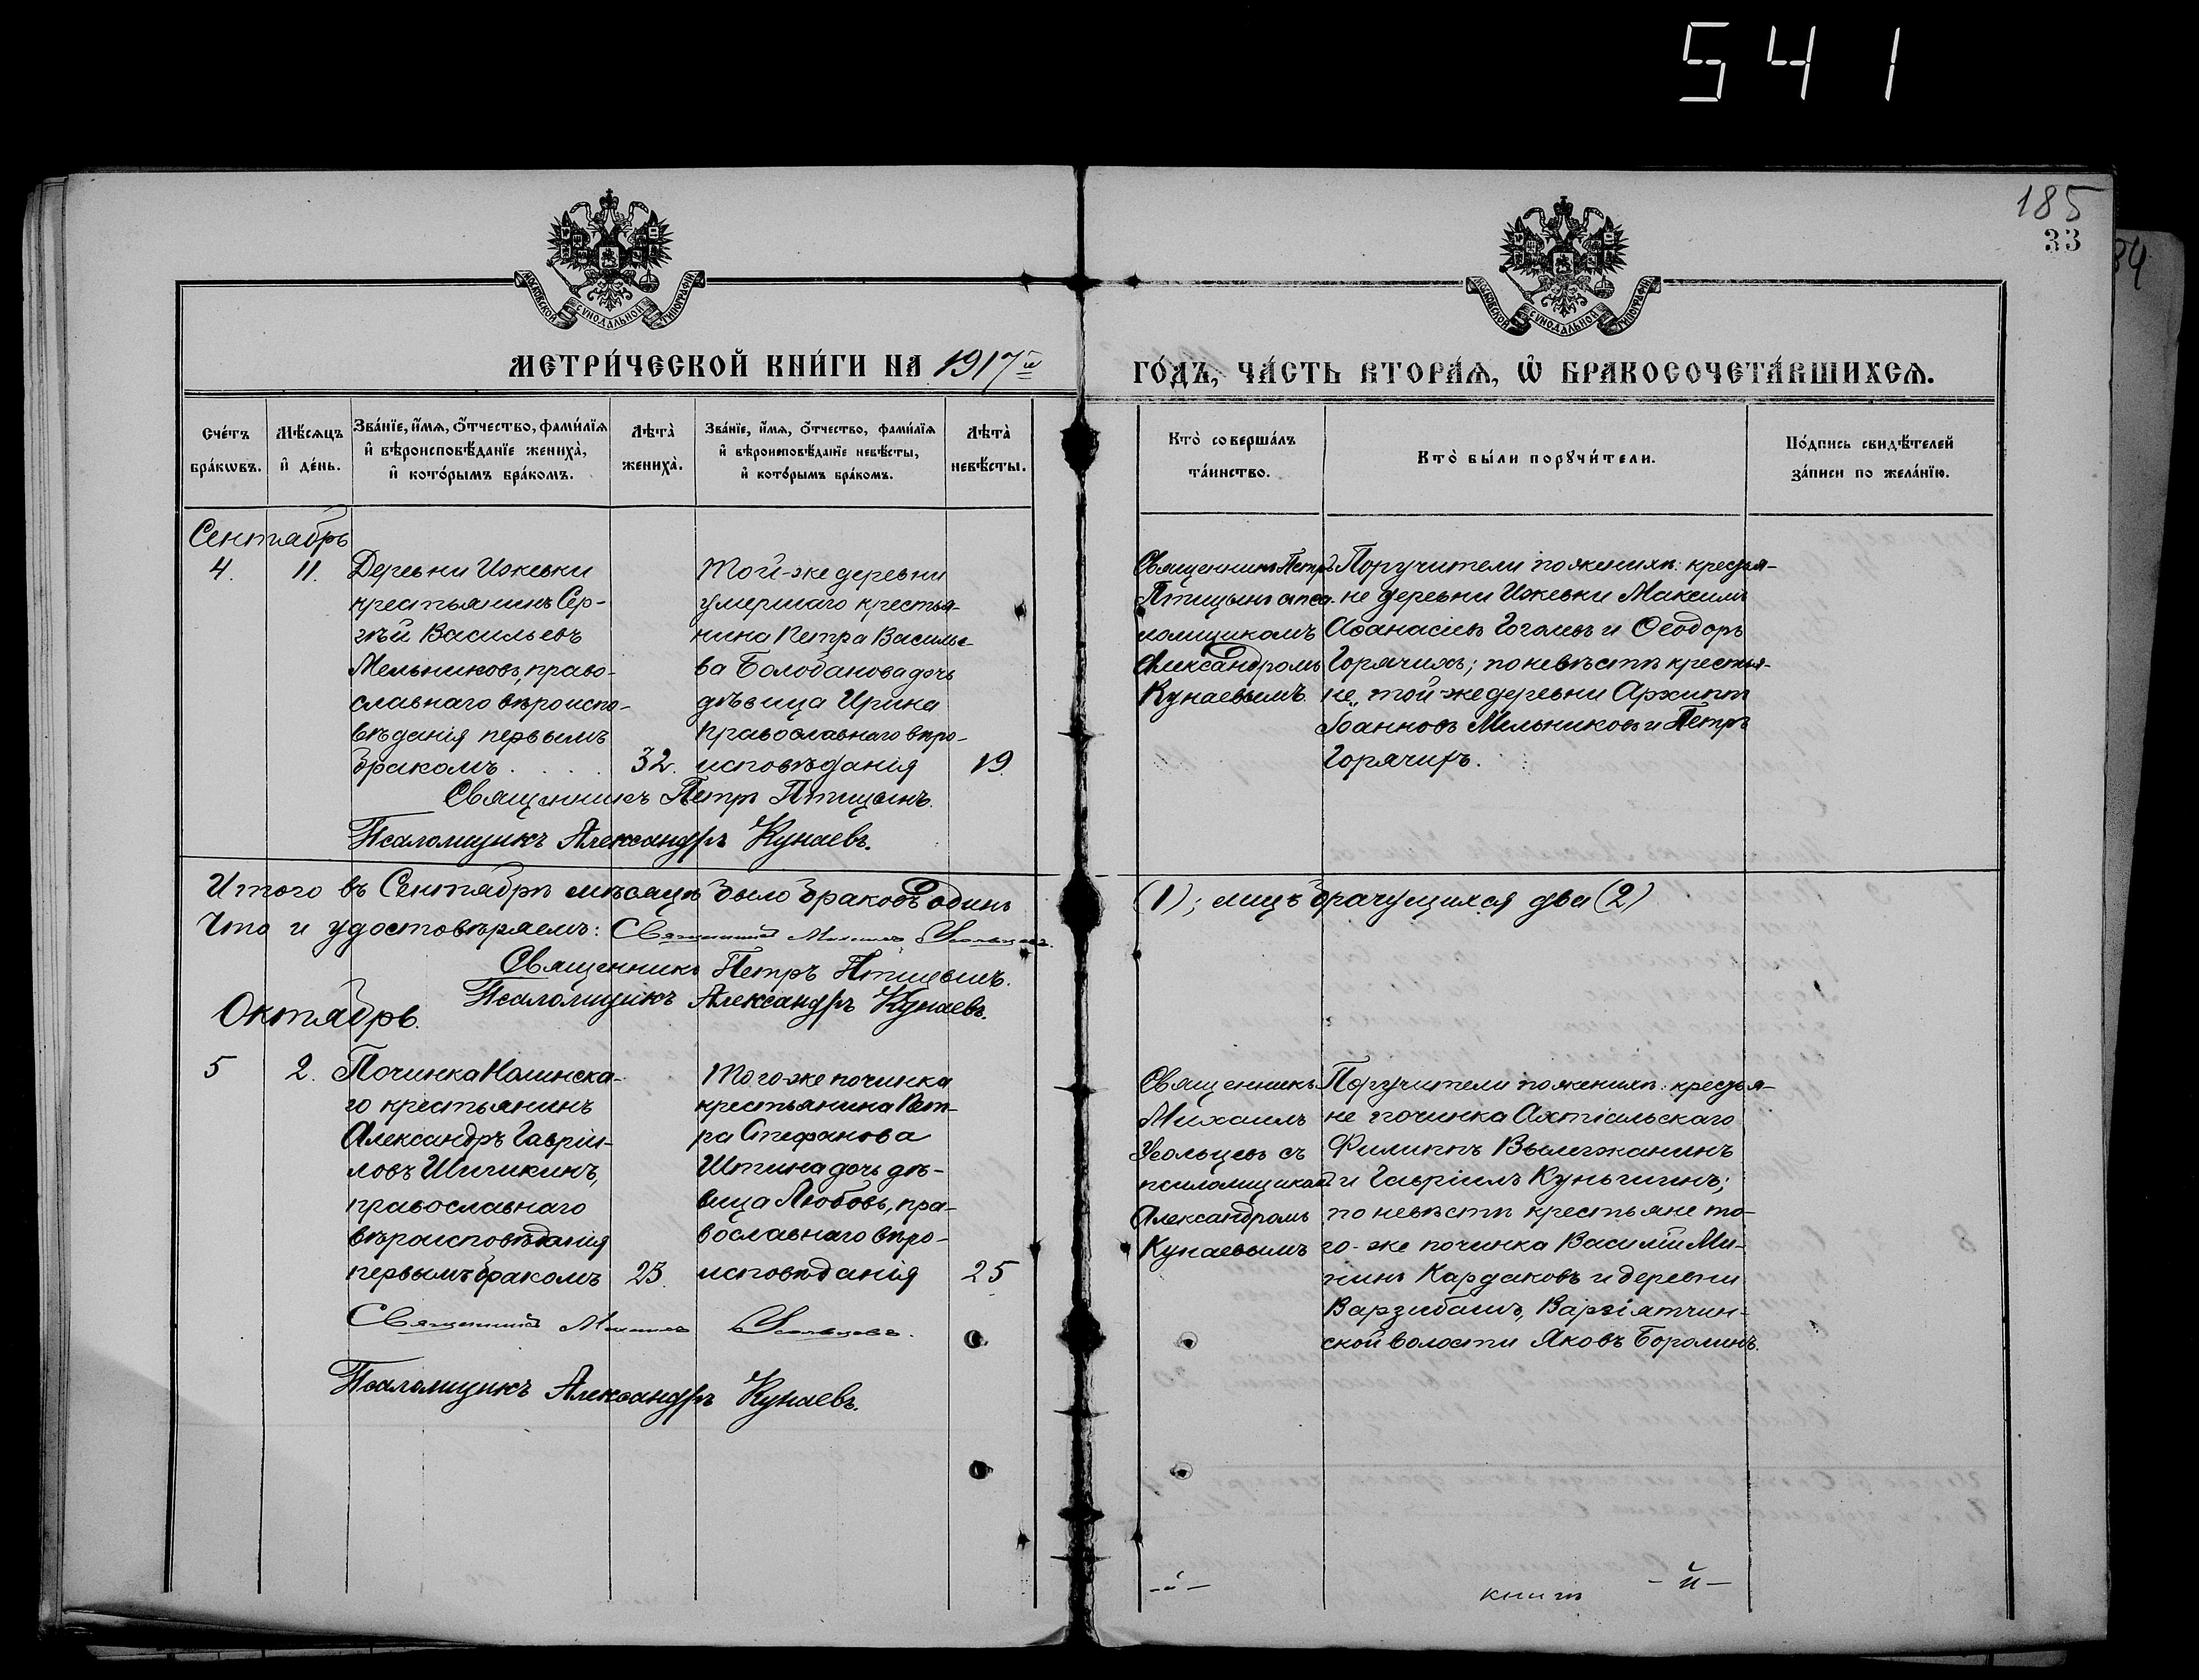 541
185
33
34
МОСКОВСКОЙ СѴНОДАЛЬНОЙ ТИПОГРАФІИ
МОСКОВСКОЙ СѴНОДАЛЬНОЙ ТИПОГРАФІИ
МЕТРИ́ЧЕСКОЙ КНИ́ГИ НА 1917й
ГО́ДЪ, ЧА́СТЬ ВТОРА́Ѧ, Ѡ҆ БРАКОСОЧЕТА́ВШИХСѦ.
Сче́тъ бра́кѡвъ.
Мѣ́сѧцъ и҆ де́нь.
Зва́нїе, и҆́мѧ, ѻ҆́тчество, фами́лїѧ
и҆ вѣроисповѣ́данїе жениха̀,
и҆ кото́рымъ бра́комъ.
Лѣта̀ жениха̀.
Зва́нїе, и҆́мѧ, ѻ҆́тчество, фами́лїѧ
и҆ вѣроисповѣ́данїе невѣ́сты,
и҆ кото́рымъ бра́комъ.
Лѣта̀ невѣ́сты.
Кто̀ соверша́лъ
та́инство.
Кто̀ бы́ли порꙋчи́тели.
По́дпись свидѣ́телей
за́писи по жела́нїю.
Сентябрь
4. 11.
Деревни Ижевки
крестьянинъ Сер-
гѣй Васильевъ
Мельниковъ, право-
славнаго вѣроиспо-
вѣданія первымъ
бракомъ . . . . 32.
Той-же деревни
умершаго крестья-
нина Петра Василье-
ва Болобанова дочь
дѣвица Ирина
православнаго вѣро-
исповѣданія 19.
Священникъ Петръ
Птицынъ съ пса-
ломщикомъ
Александромъ
Кунаевымъ.
Поручители по женихѣ: крестья-
не деревни Ижевки Максимъ
Аѳанасіевъ Гоголевъ и Ѳеодоръ
Горячихъ; по невѣстѣ крестья-
не той-же деревни Архиппъ
Іоанновъ Мельниковъ и Петръ
Горячихъ.
Священникъ Петръ Птицынъ.
Псаломщикъ Александръ Кунаевъ.
Итого въ Сентябрѣ мѣсяцѣ было браковъ одинъ (1); лицъ брачущихся два (2)
Что и удостовѣряемъ: Священникъ Михаилъ Усольцевъ.
Священникъ Петръ Птицынъ.
Псаломщикъ Александръ Кунаевъ.
Октябрь.
5 2.
Починка Нолинска-
го крестьянинъ
Александръ Гаврiи-
ловъ Шишкинъ,
православнаго
вѣроисповѣданія
первымъ бракомъ 23.
Того-же починка
крестьянина Пет-
ра Стефанова
Штина дочь дѣ-
вица Любовь, пра-
вославнаго вѣро-
исповѣданія 25
Священникъ
Михаилъ
Усольцевъ съ
псаломщикомъ
Александромъ
Кунаевымъ
Поручители по женихѣ: крестья-
не починка Ахтіальскаго
Филиппъ Вылегжанинъ
и Гавріилъ Куньгинъ;
по невѣстѣ крестьяне то-
го-же починка Василій Ми-
нинъ Кардаковъ и деревни
Варзибашъ, Варзіятчин-
ской волости Яковъ Боролинъ.
Священникъ Михаилъ Усольцевъ.
Псаломщикъ Александръ Кунаевъ.
-й-
книги
-й-